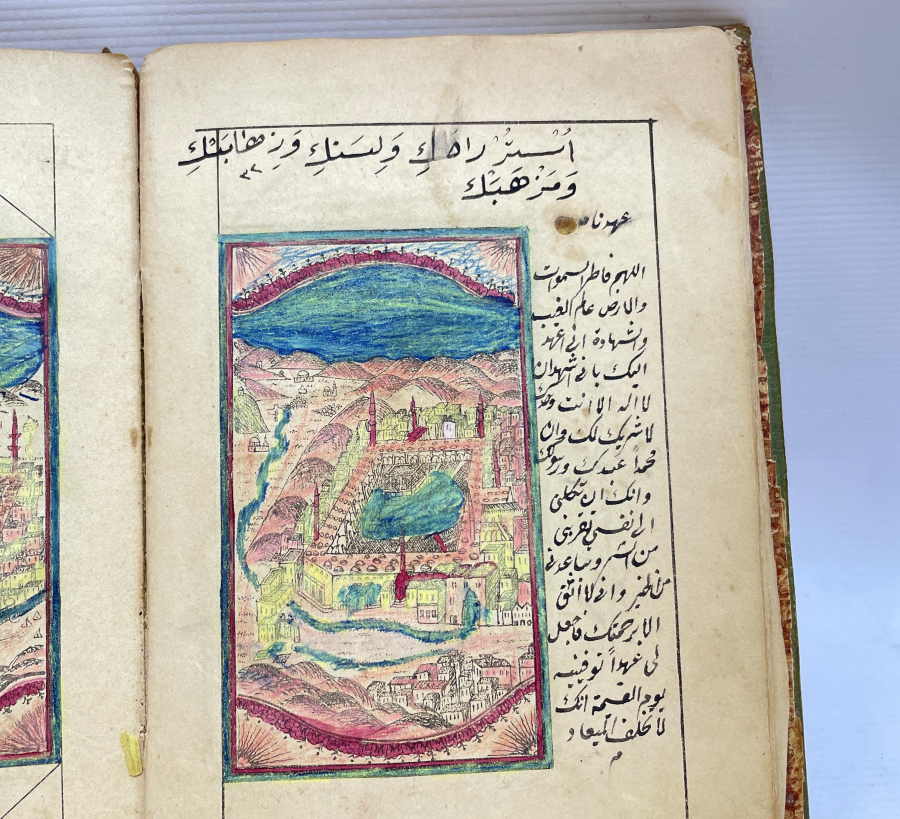 اُسْتُرْ وَلِسَنكِ وَزِهَابَتْكِ
وَمَزْهَبَكْ
عهدنامه
اللهم فاطر السموات
والارض عالم الغيب
والشهادة انى اعهد
اليك بانى اشهد ان
لا اله الا انت وحدك
لا شريك لك وان
محمداً عبدك ورسولك
وانك ان تكلنى
الى نفسى تقربنى
من الشر وتباعدنى
من الخير وانى لا اثق
الا برحمتك فاجعل
لى عهداً توفينيه
يوم القيمة انك
لا تخلف الميعاد
م